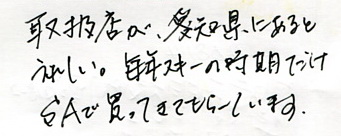 取扱店が、愛知県にあると
うれしい。毎年スキーの時期だけ
SAで買ってきてもらっています。